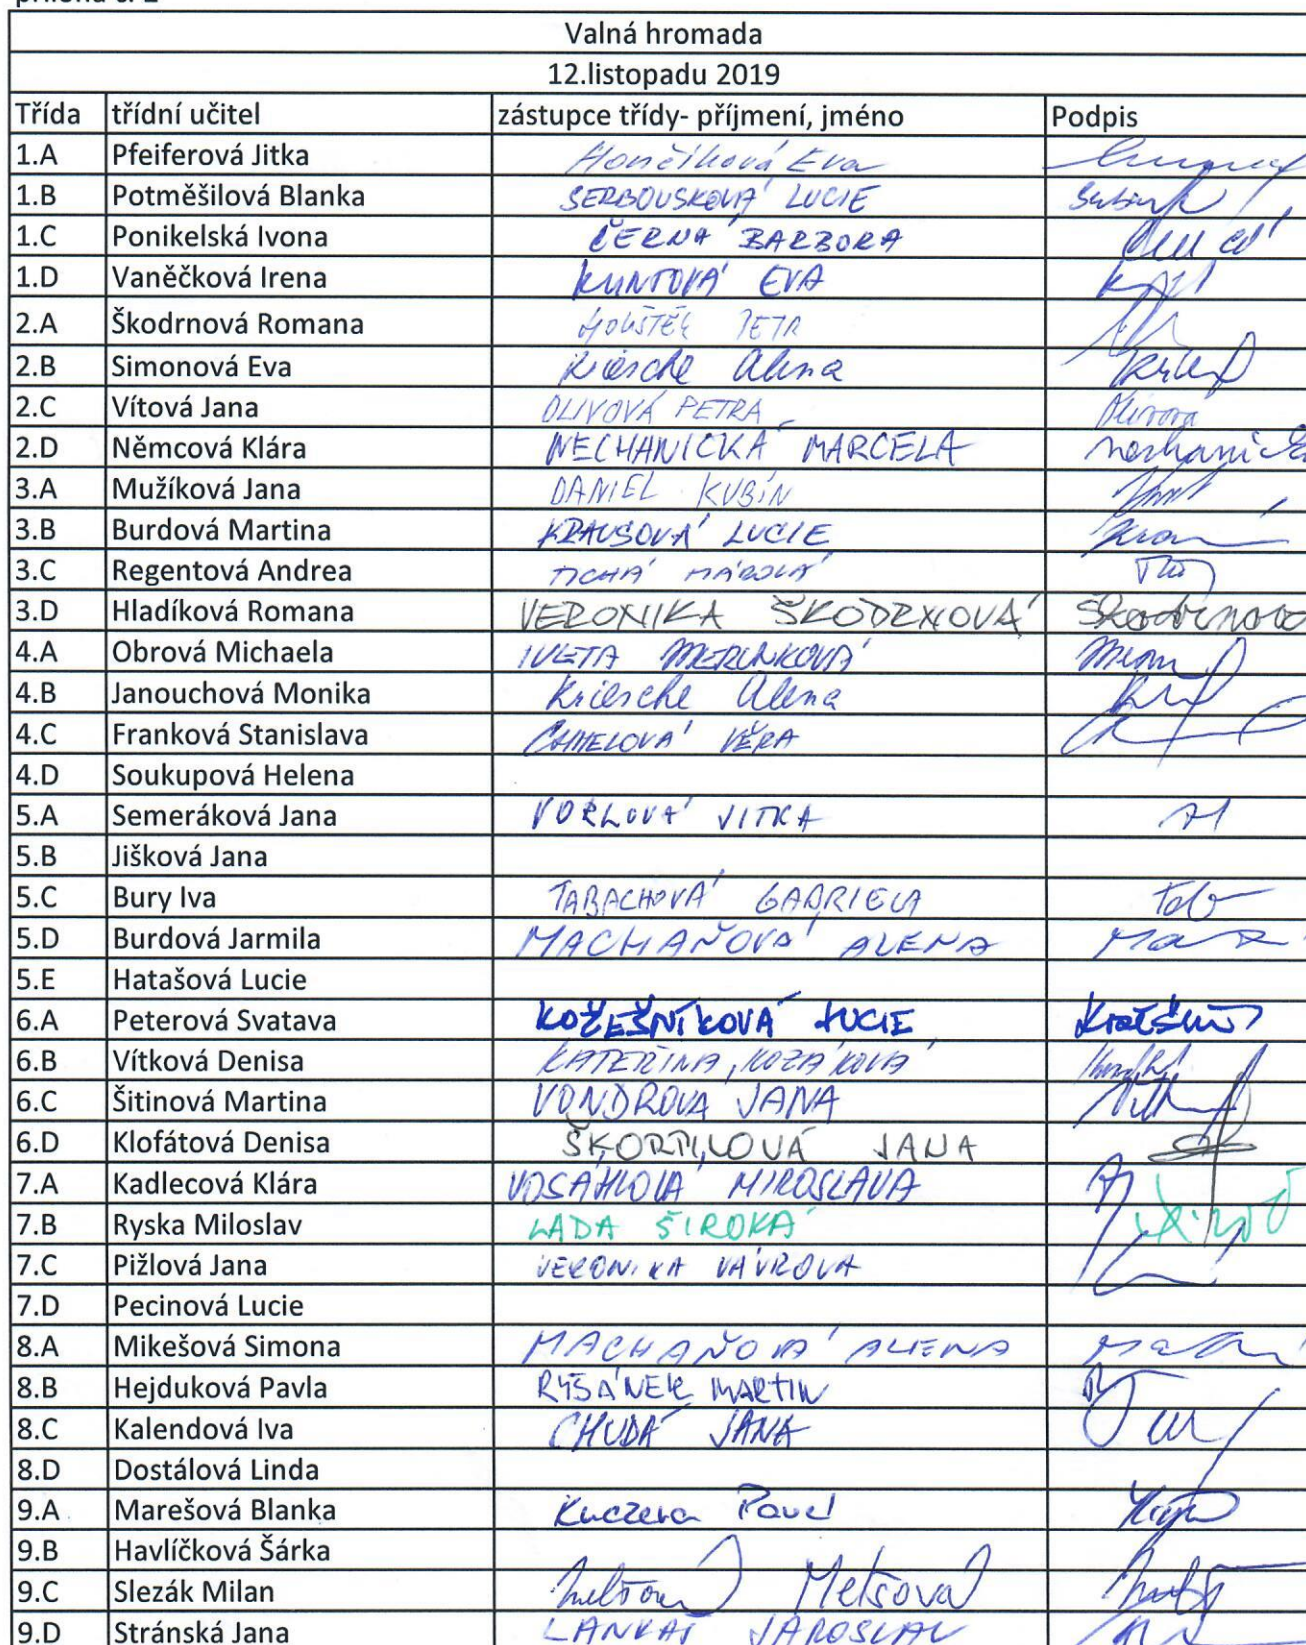 Valná hromada
12.listopadu 2019
Třída třídní učitel zástupce třídy- příjmení, jméno Podpis
1.A Pfeiferová Jitka Eva
1.B Potměšilová Blanka SERBOUSKOVÁ LUCIE
1.C Ponikelská Ivona ČERNÁ BARBORA
1.D Vaněčková Irena KUNTOVÁ EVA
2.A Škodrnová Romana PETR
2.B Simonová Eva Kriesche Alena
2.C Vítová Jana OLIVOVÁ PETRA Olivová
2.D Němcová Klára NECHANICKÁ MARCELA
3.A Mužíková Jana DANIEL KUBÍN
3.B Burdová Martina KRAUSOVÁ LUCIE
3.C Regentová Andrea TICHÁ
3.D Hladíková Romana VERONIKA ŠKODRNOVÁ Škodrnová
4.A Obrová Michaela IVETA MERUNKOVÁ
4.B Janouchová Monika Kriesche Alena
4.C Franková Stanislava VĚRA
4.D Soukupová Helena
5.A Semeráková Jana VORLOVÁ JITKA
5.B Jišková Jana
5.C Bury Iva TABACHOVÁ GABRIELA
5.D Burdová Jarmila MACHAŇOVÁ ALENA
5.E Hatašová Lucie
6.A Peterová Svatava KOŽEŠNÍKOVÁ LUCIE
6.B Vítková Denisa KATEŘINA, KOZÁKOVÁ
6.C Šitinová Martina VONDROVA JANA
6.D Klofátová Denisa JANA
7.A Kadlecová Klára VOSÁHLOVÁ MIROSLAVA
7.B Ryska Miloslav LADA ŠIROKÁ
7.C Pižlová Jana VERONIKA VAVROVA
7.D Pecinová Lucie
8.A Mikešová Simona MACHAŇOVÁ ALENA
8.B Hejduková Pavla RYŠÁNEK MARTIN
8.C Kalendová Iva CHUDÁ JANA
8.D Dostálová Linda
9.A Marešová Blanka Kuczera Pavel
9.B Havlíčková Šárka
9.C Slezák Milan
9.D Stránská Jana JAROSLAV